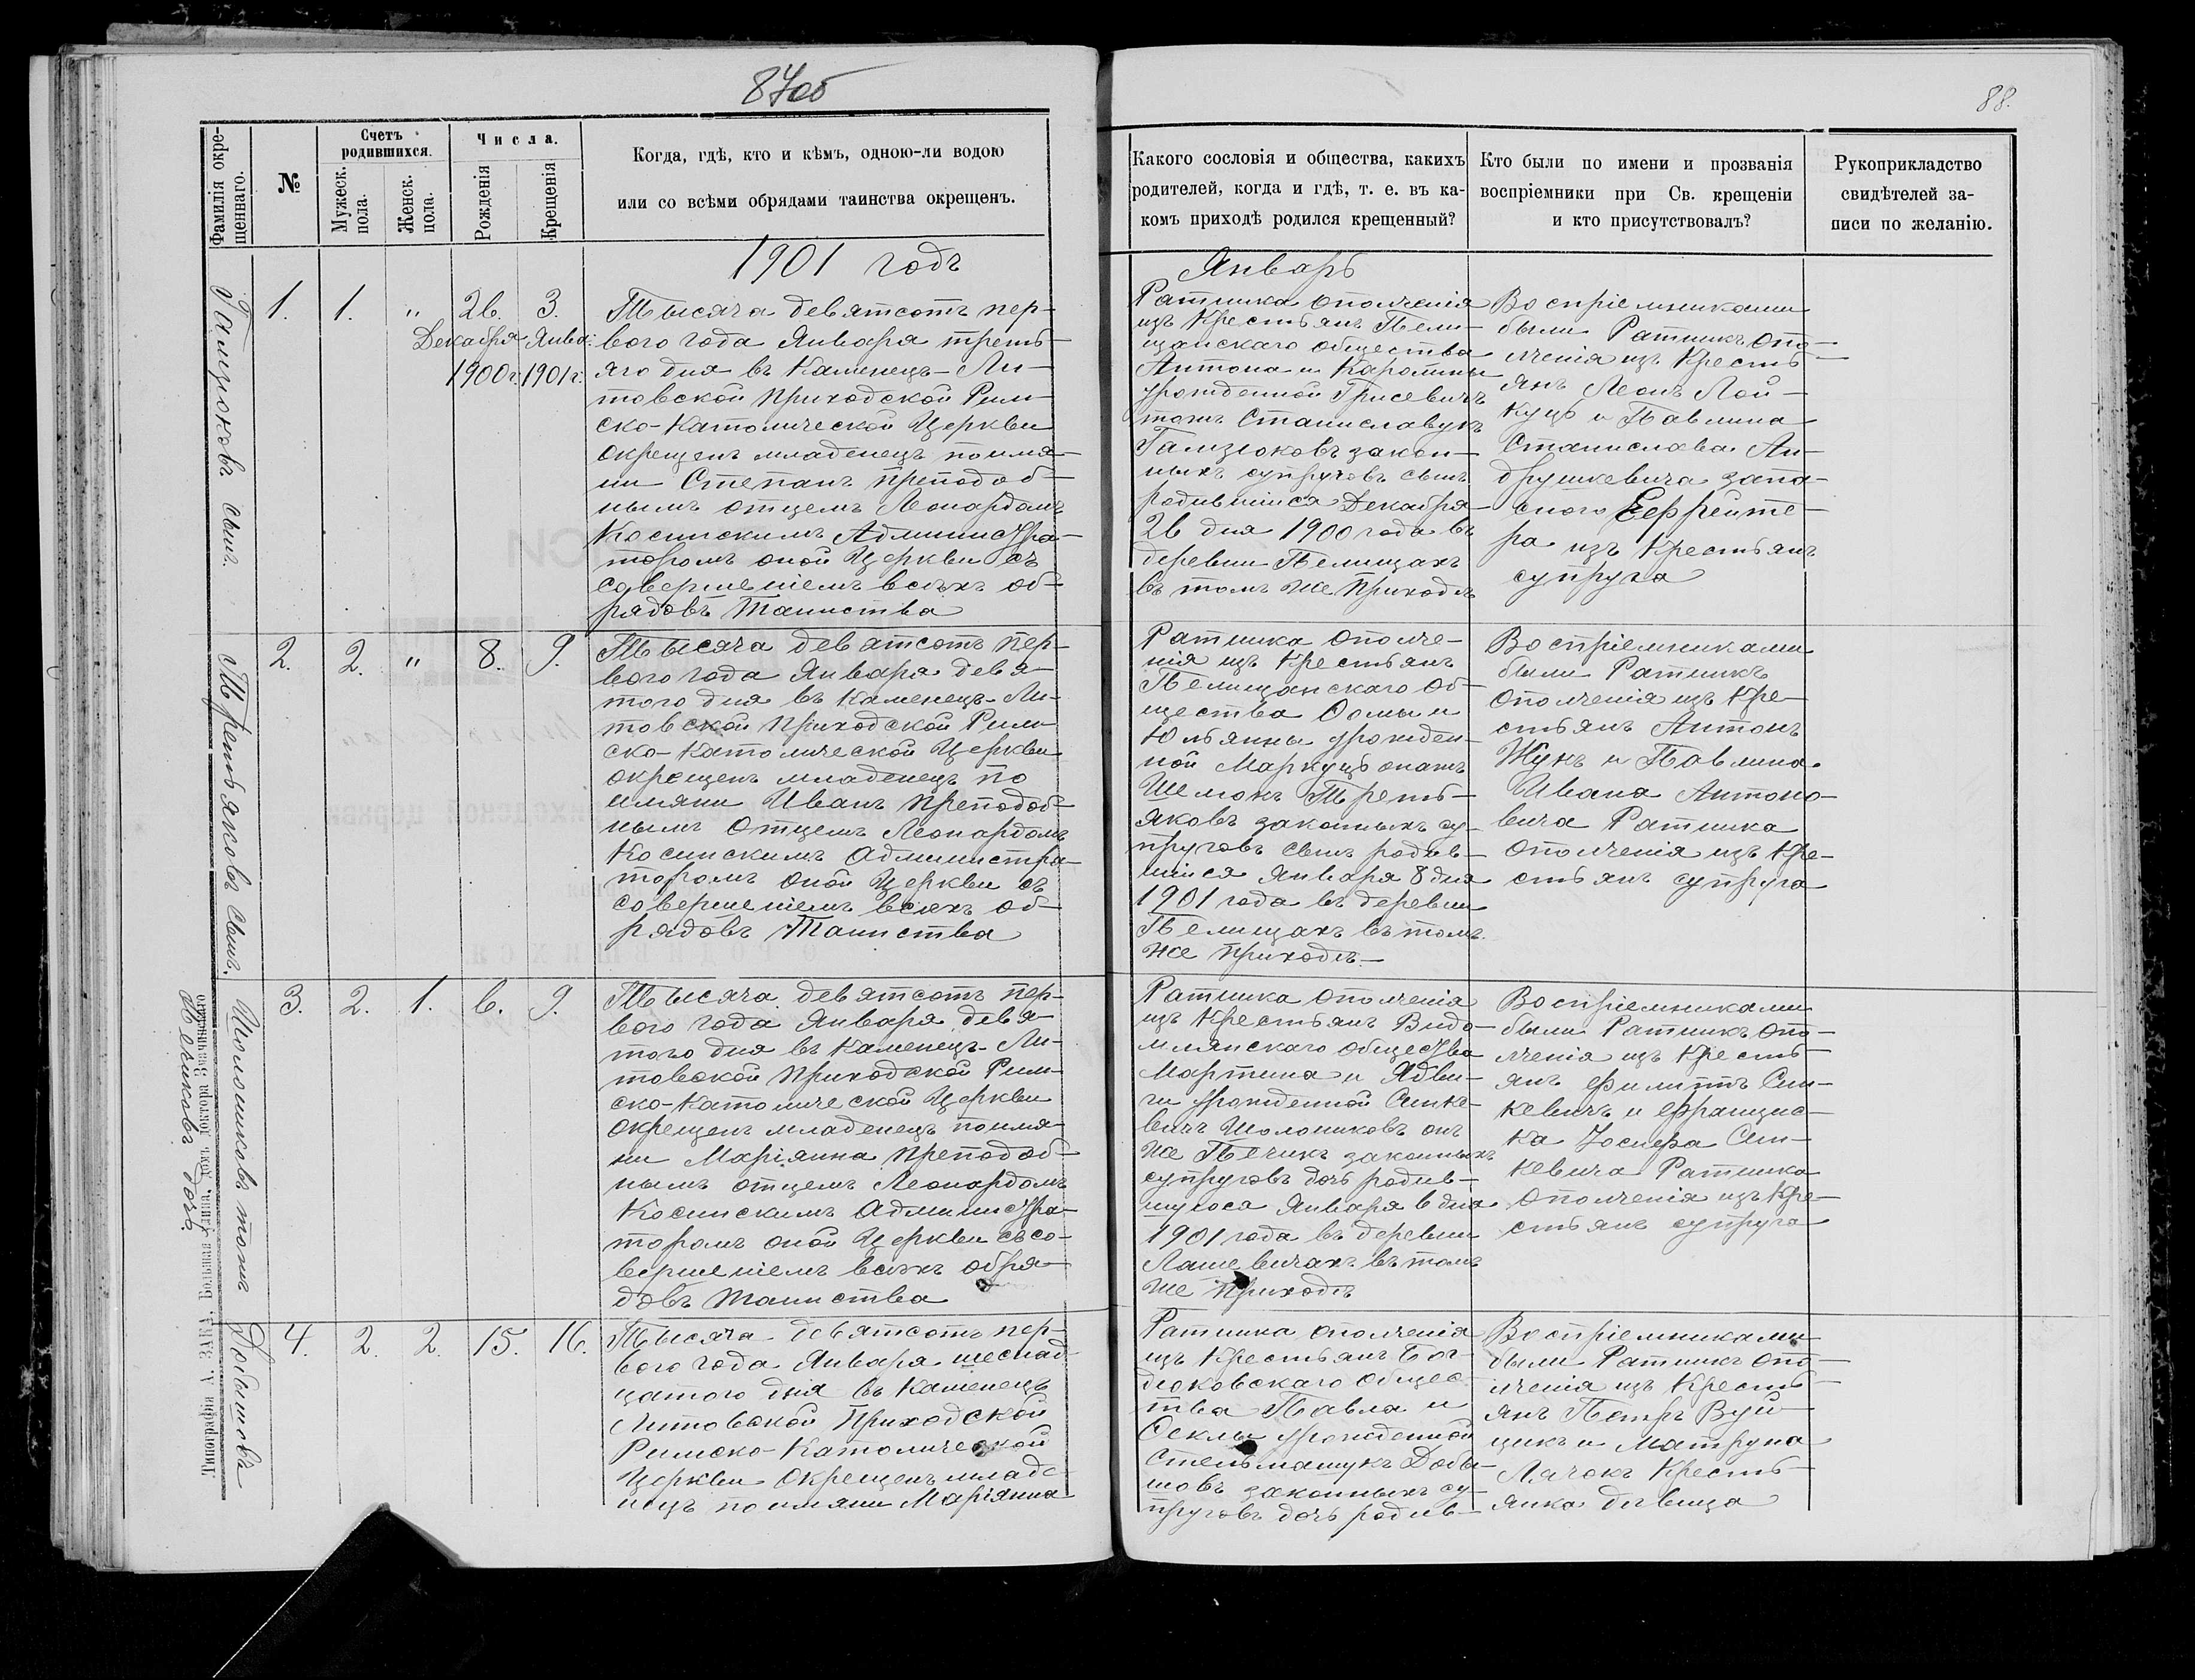 87об
88.
Фамилія окре-
щеннаго.
№
Счетъ
родившихся.
Мужеск.
пола.
Женск.
пола.
Числа.
Рожденія
Крещенія
Когда, гдѣ, кто и кѣмъ, одною-ли водою
или со всѣми обрядами таинства окрещенъ.
Какого сословія и общества, какихъ
родителей, когда и гдѣ, т. е. въ ка-
комъ приходѣ родился крещенный?
Кто были по имени и прозванія
воспріемники при Св. крещеніи
и кто присутствовалъ?
Рукоприкладство
свидѣтелей за-
писи по желанію.
1901 годъ
Январь
Гамзюковъ сынъ.
1.
1.
"
26.
Декабря
1900г.
3.
Янва:
1901г.
Тысяча девятсотъ пер-
вого года Января треть-
яго дня въ Каменецъ-Ли-
товской Приходской Рим-
ско-Католической Церкви
окрещенъ младенецъ по имя-
ни Степанъ преподоб-
нымъ отцемъ Леонардомъ
Косинскимъ Администра-
торомъ оной Церкви съ
совершеніемъ всѣхъ об-
рядовъ Таинства
Ратника ополченія
изъ Крестьянъ Пели-
щанскаго общества
Антона и Каролины
урожденной Грисевичъ
тожъ Станиславукъ
Гамзюковъ закон-
ныхъ супруговъ сынъ
родившійся Декабря
26 дня 1900 года въ
деревни Пелищахъ
въ томъ же Приходѣ
Воспріемниками
были Ратникъ опо-
лченія изъ Кресть-
янъ Леонъ Лой-
куцъ и Павлина
Станислава Ан-
друшкевича запа-
сного Еефрейте-
ра изъ Крестьянъ
супруга
Третьяковъ сынъ.
2.
2.
"
8.
9.
Тысяча девятсотъ пер-
вого года Января девя-
того дня въ Каменецъ-Ли-
товской Приходской Рим-
ско-Католической Церкви
окрещенъ младенецъ по
имяни Иванъ преподоб-
нымъ Отцемъ Леонардомъ
Косинскимъ Администра-
торомъ оной Церкви съ
совершеніемъ всѣхъ об-
рядовъ Таинства
Ратника ополче-
нія изъ Крестьянъ
Пелищанскаго об-
щества Ѳомы и
Юльянны урожден-
ной Маркуцъ онажъ
Шемокъ Треть-
яковъ законныхъ су-
пруговъ сынъ родив-
шійся Января 8 дня
1901 года въ деревни
Пелищахъ въ томъ
же приходѣ
Воспріемниками
были Ратникъ
ополченія изъ Кре-
стьянъ Антонъ
Жукъ и Павлина
Ивана Антоно-
вича Ратника
ополченія изъ Кре-
стьянъ супруга
Шолониковъ тожъ
Печиковъ дочь
3.
2.
1.
6.
9.
Тысяча девятсотъ пер-
вого года Января девя-
того дня въ Каменецъ-Ли-
товской Приходской Рим-
ско-Католической Церкви
окрещенъ младенецъ по имя-
ни Маріянна преподоб-
нымъ отцемъ Леонардомъ
Косинскимъ Администра-
торомъ оной Церкви съ со-
вершеніемъ всѣхъ обря-
довъ таинства
Ратника ополченія
изъ Крестьянъ Видо-
млянскаго общества
Мартина и Ядви-
ги урожденной Синке-
вичъ Шолониковъ онъ
же Печикъ законныхъ
супруговъ дочь родив-
шуюся Января 6 дня
1901 года въ деревни
Лашевичахъ въ томъ
же приходѣ
Воспріемниками
были Ратникъ опо-
лченія изъ Кресть-
янъ Филиппъ Син-
кевичъ и Францис-
ка Іосифа Син-
кевича Ратника
ополченія изъ Кре-
стьянъ супруга
Добышовъ
4.
2.
2.
15.
16.
Тысяча девятсотъ пер-
вого года Января шеснад-
цатого дня въ Каменецъ
Литовской Приходской
Римско-Католической
Церкви окрещенъ младе-
нецъ по имяни Маріянна
Ратника ополченія
изъ Крестьянъ Бог-
дюковскаго общес-
тва Павла и
Ѳеклы урожденной
Стельмашукъ Добы-
шовъ законныхъ су-
пруговъ дочь родив-
Воспріемниками
были Ратникъ опо-
лченія изъ Кресть-
янъ Петръ Вуй-
цикъ и Матруна
Лачокъ Кресть-
янка дѣвица
Типографія А. ЗАКА, Большая улица, домъ доктора Значинскаго